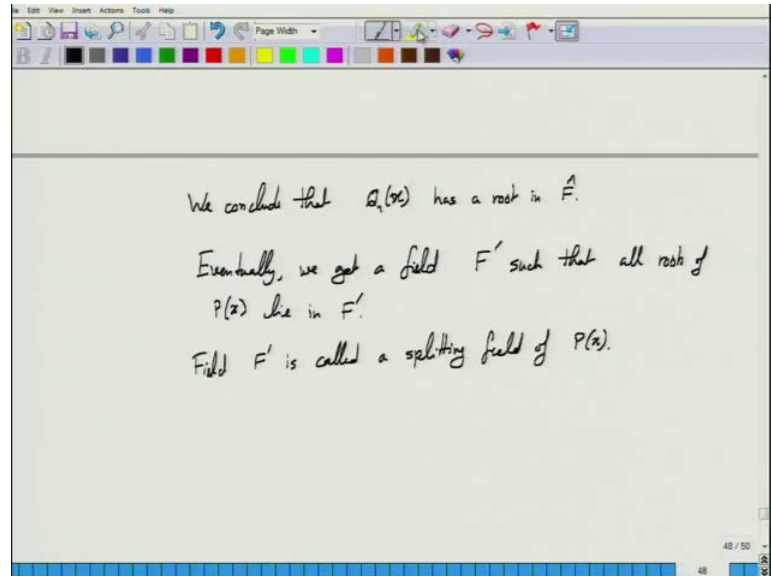 File Edit View Insert Actions Tools Help
Page Width
B I
We conclude that Q₁(x) has a root in F̂.
Eventually, we get a field F′ such that all roots of
P(x) lie in F′.
Field F′ is called a splitting field of P(x).
48 / 50
48